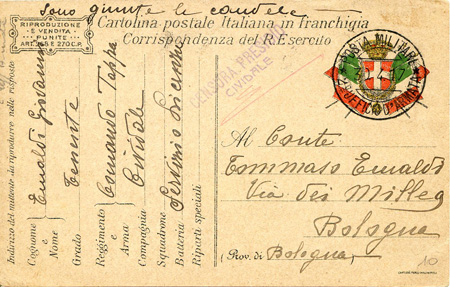 Sono giunte le candele
RIPRODUZIONE
E VENDITA
PUNITE
ART. 265 E 270 C.P.
Cartolina postale Italiana in franchigia
Corrispondenza del R. Esercito
CENSURA
CIVIDALE
POSTA MILITARE
Indirizzo del mittente da riprodurre nelle risposte
Cognome e Nome Emaldi Giovanni
Grado Tenente
Reggimento e Arma Comando Tappa
Compagnia Cividale
Squadrone
Batteria Servizio
Riparti speciali
Al Conte
Tommaso Emaldi
Via dei Mille 9
Bologna
(Prov. di Bologna)
10